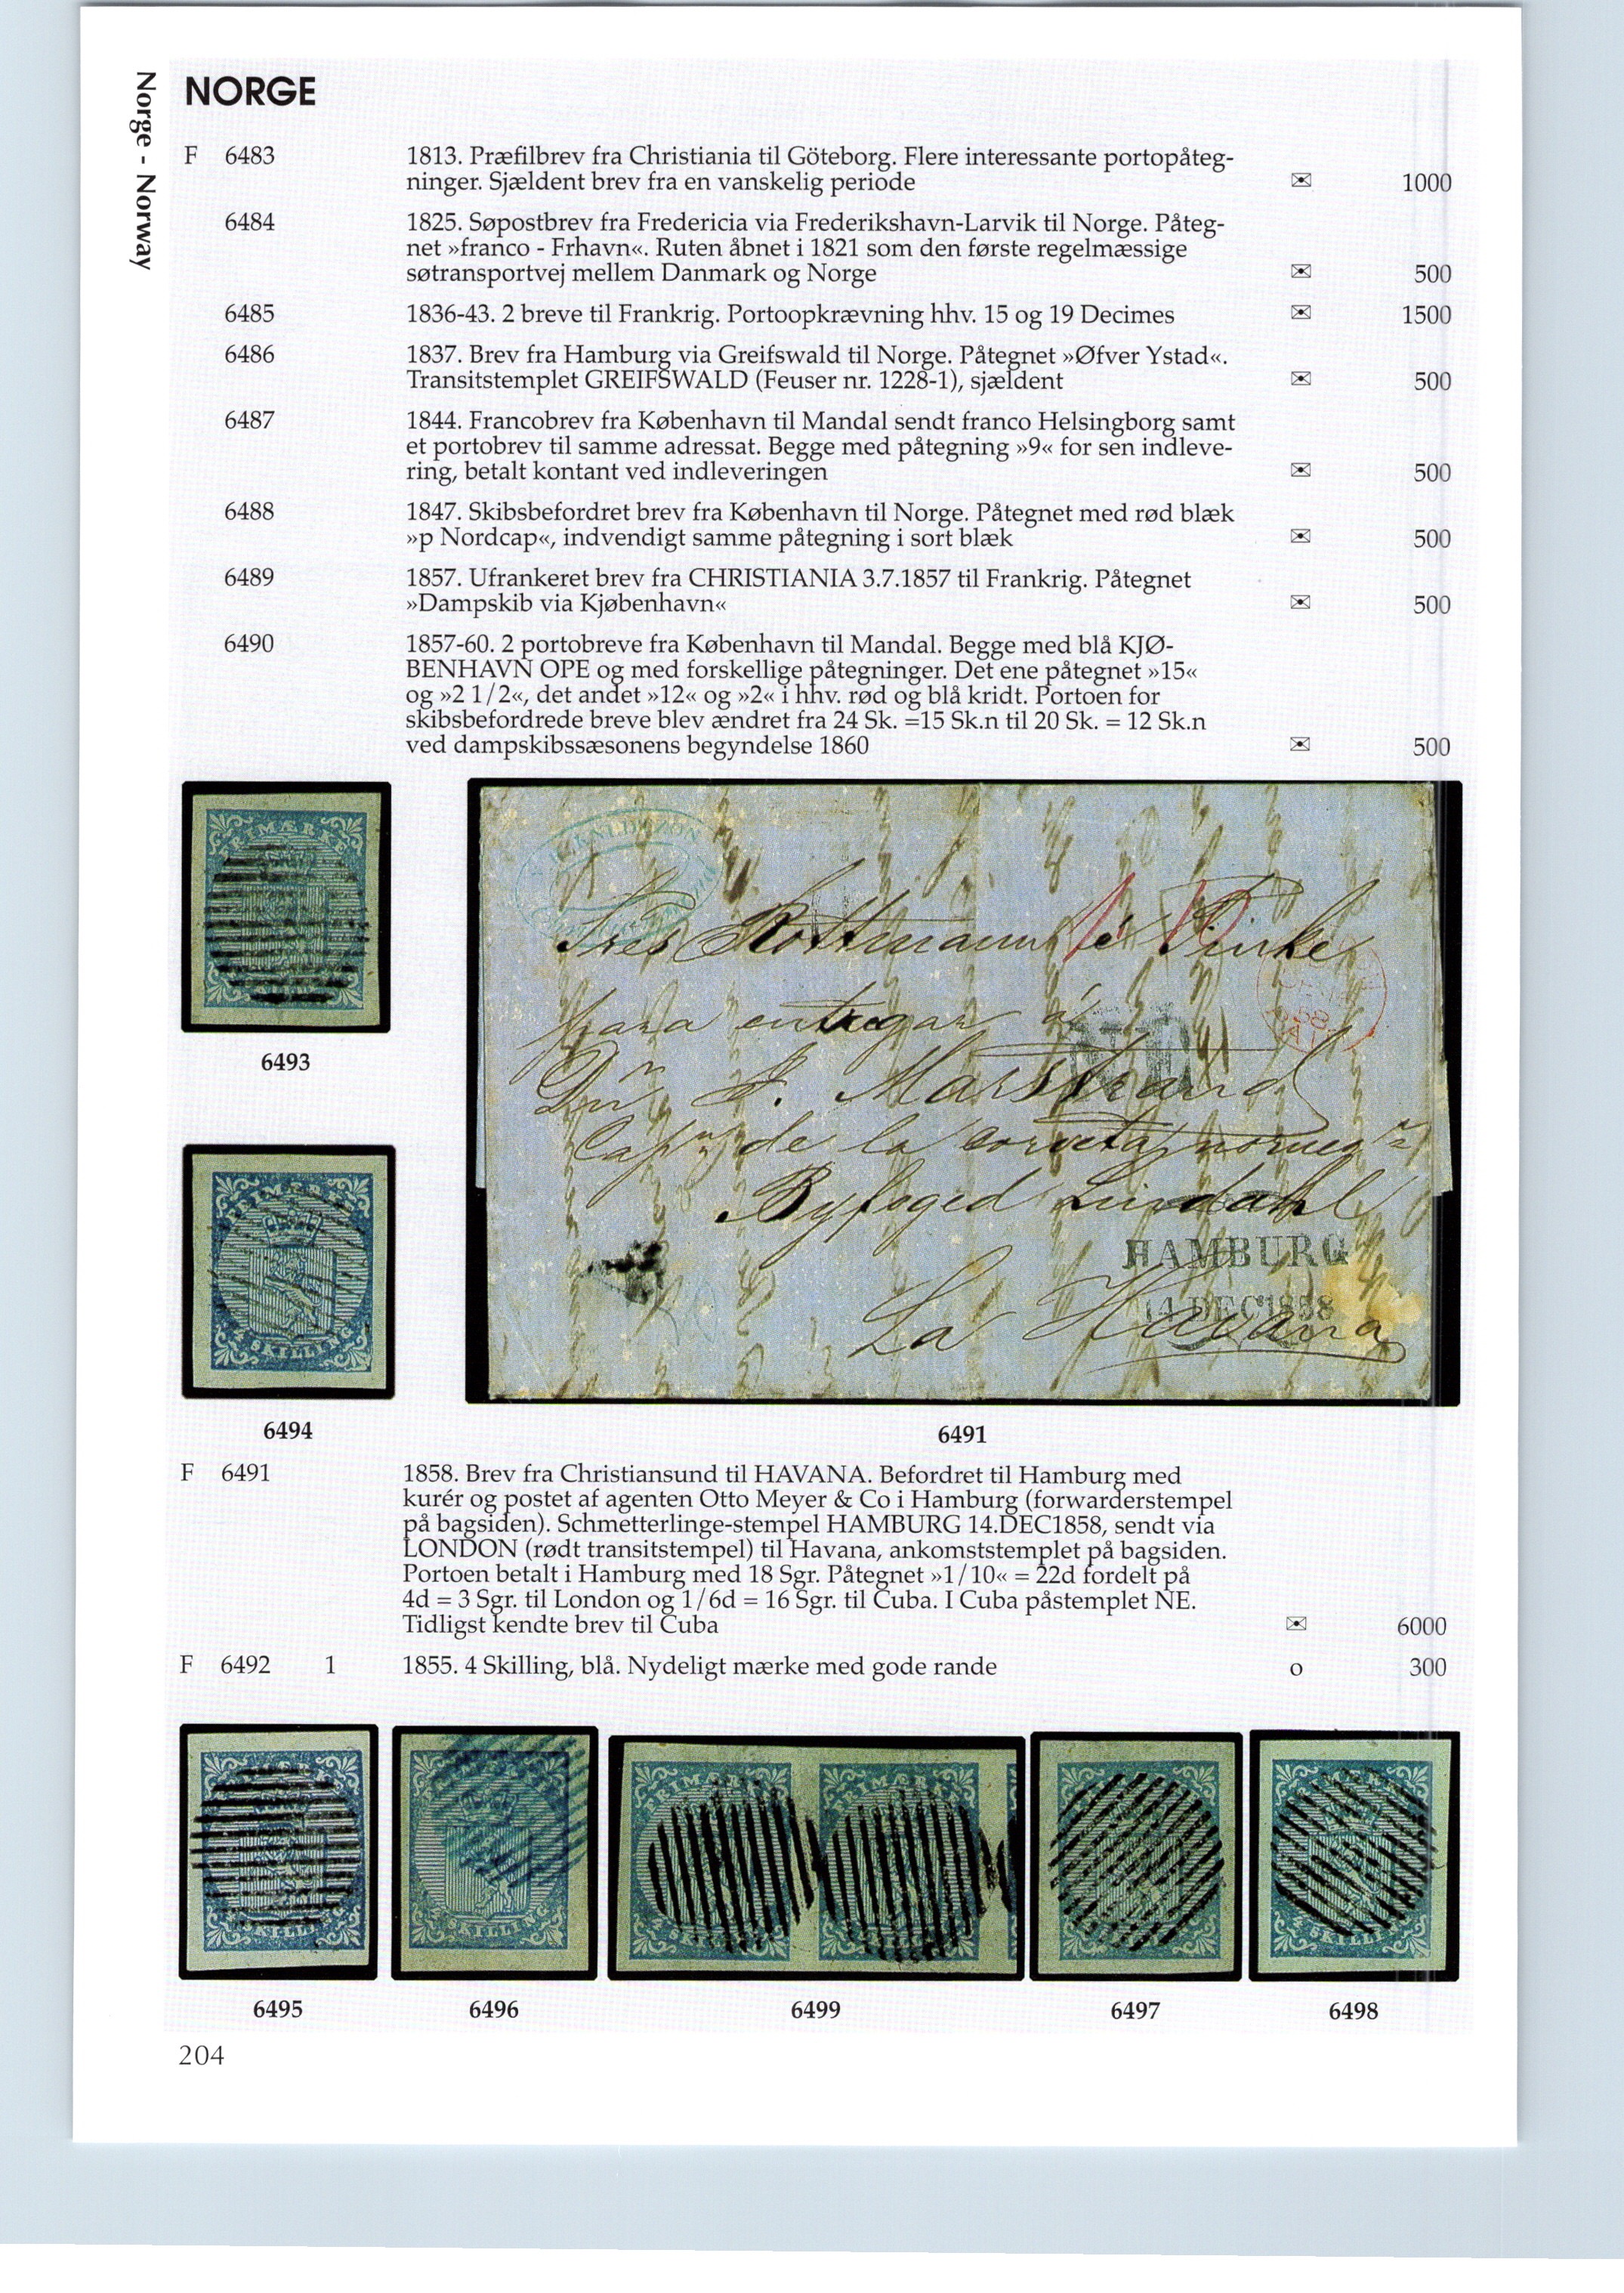 Norge - Norway
NORGE
F 6483 1813. Præfilbrev fra Christiania til Göteborg. Flere interessante portopåteg-
ninger. Sjældent brev fra en vanskelig periode ✉ 1000
6484 1825. Søpostbrev fra Fredericia via Frederikshavn-Larvik til Norge. Påteg-
net »franco - Frhavn«. Ruten åbnet i 1821 som den første regelmæssige
søtransportvej mellem Danmark og Norge ✉ 500
6485 1836-43. 2 breve til Frankrig. Portoopkrævning hhv. 15 og 19 Decimes ✉ 1500
6486 1837. Brev fra Hamburg via Greifswald til Norge. Påtegnet »Øfver Ystad«.
Transitstemplet GREIFSWALD (Feuser nr. 1228-1), sjældent ✉ 500
6487 1844. Francobrev fra København til Mandal sendt franco Helsingborg samt
et portobrev til samme adressat. Begge med påtegning »9« for sen indleve-
ring, betalt kontant ved indleveringen ✉ 500
6488 1847. Skibsbefordret brev fra København til Norge. Påtegnet med rød blæk
»p Nordcap«, indvendigt samme påtegning i sort blæk ✉ 500
6489 1857. Ufrankeret brev fra CHRISTIANIA 3.7.1857 til Frankrig. Påtegnet
»Dampskib via Kjøbenhavn« ✉ 500
6490 1857-60. 2 portobreve fra København til Mandal. Begge med blå KJØ-
BENHAVN OPE og med forskellige påtegninger. Det ene påtegnet »15«
og »2 1/2«, det andet »12« og »2« i hhv. rød og blå kridt. Portoen for
skibsbefordrede breve blev ændret fra 24 Sk. =15 Sk.n til 20 Sk. = 12 Sk.n
ved dampskibssæsonens begyndelse 1860 ✉ 500
6493
Sres Rottmann & Finke
para entregar á
Dn J. Marstrand
Capn de la corveta
Byfoged Lindahl
HAMBURG
14 DEC 1858
La Havana
NE
SKILLING
6494
6491
F 6491 1858. Brev fra Christiansund til HAVANA. Befordret til Hamburg med
kurér og postet af agenten Otto Meyer & Co i Hamburg (forwarderstempel
på bagsiden). Schmetterlinge-stempel HAMBURG 14.DEC1858, sendt via
LONDON (rødt transitstempel) til Havana, ankomststemplet på bagsiden.
Portoen betalt i Hamburg med 18 Sgr. Påtegnet »1/10« = 22d fordelt på
4d = 3 Sgr. til London og 1/6d = 16 Sgr. til Cuba. I Cuba påstemplet NE.
Tidligst kendte brev til Cuba ✉ 6000
F 6492 1 1855. 4 Skilling, blå. Nydeligt mærke med gode rande o 300
6495 6496 6499 6497 6498
204